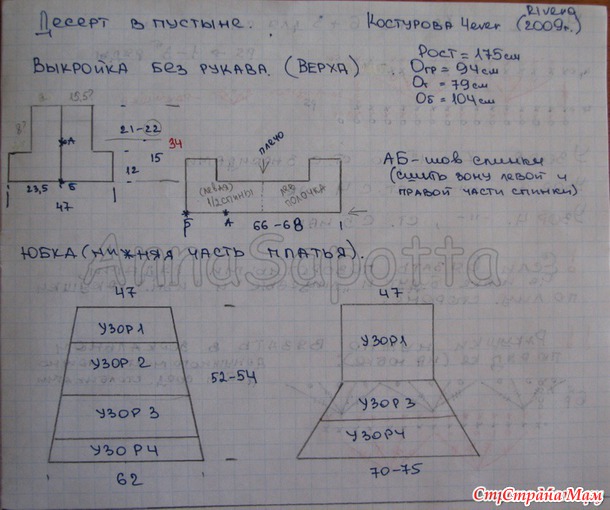 Десерт в пустыне.
Костурова 4ever
Rivera
(2009г.)
Выкройка без рукава. (верха)
Рост = 175 см
Огр = 94 см
От = 79 см
Об = 104 см
15,5?
8?
А
21-22
34
15
12
23,5
Б
47
плечо
(левая)
1/2 спины
полочка
Б
А
66-68
АБ-шов спинки
(сшить зону левой и
правой части спинки)
Юбка (нижняя часть платья).
AnnaSapotta
47
Узор 1
Узор 2
Узор 3
Узор 4
62
52-54
47
Узор 1
Узор 3
Узор 4
70-75
СтрСтрайаМам